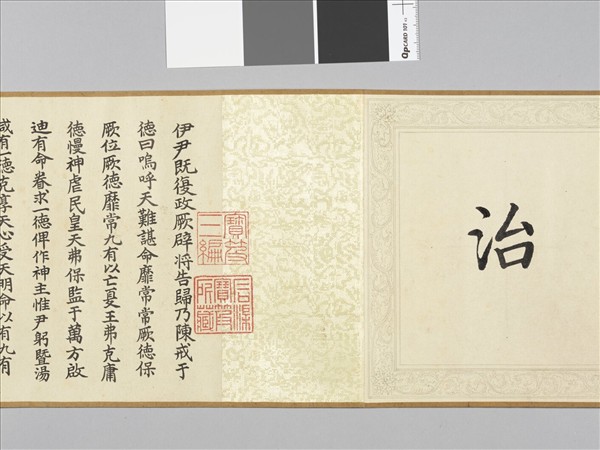 QPCARD 101
治
伊尹既復政厥辟将告歸乃陳戒于
德曰嗚呼天難諶命靡常常厥德保
厥位厥德靡常九有以亡夏王弗克庸
德慢神虐民皇天弗保監于萬方啟
迪有命眷求一德俾作神主惟尹躬暨湯
咸有一德克享天心受天明命以有九有
寶笈
三編
石渠
寶笈
所藏